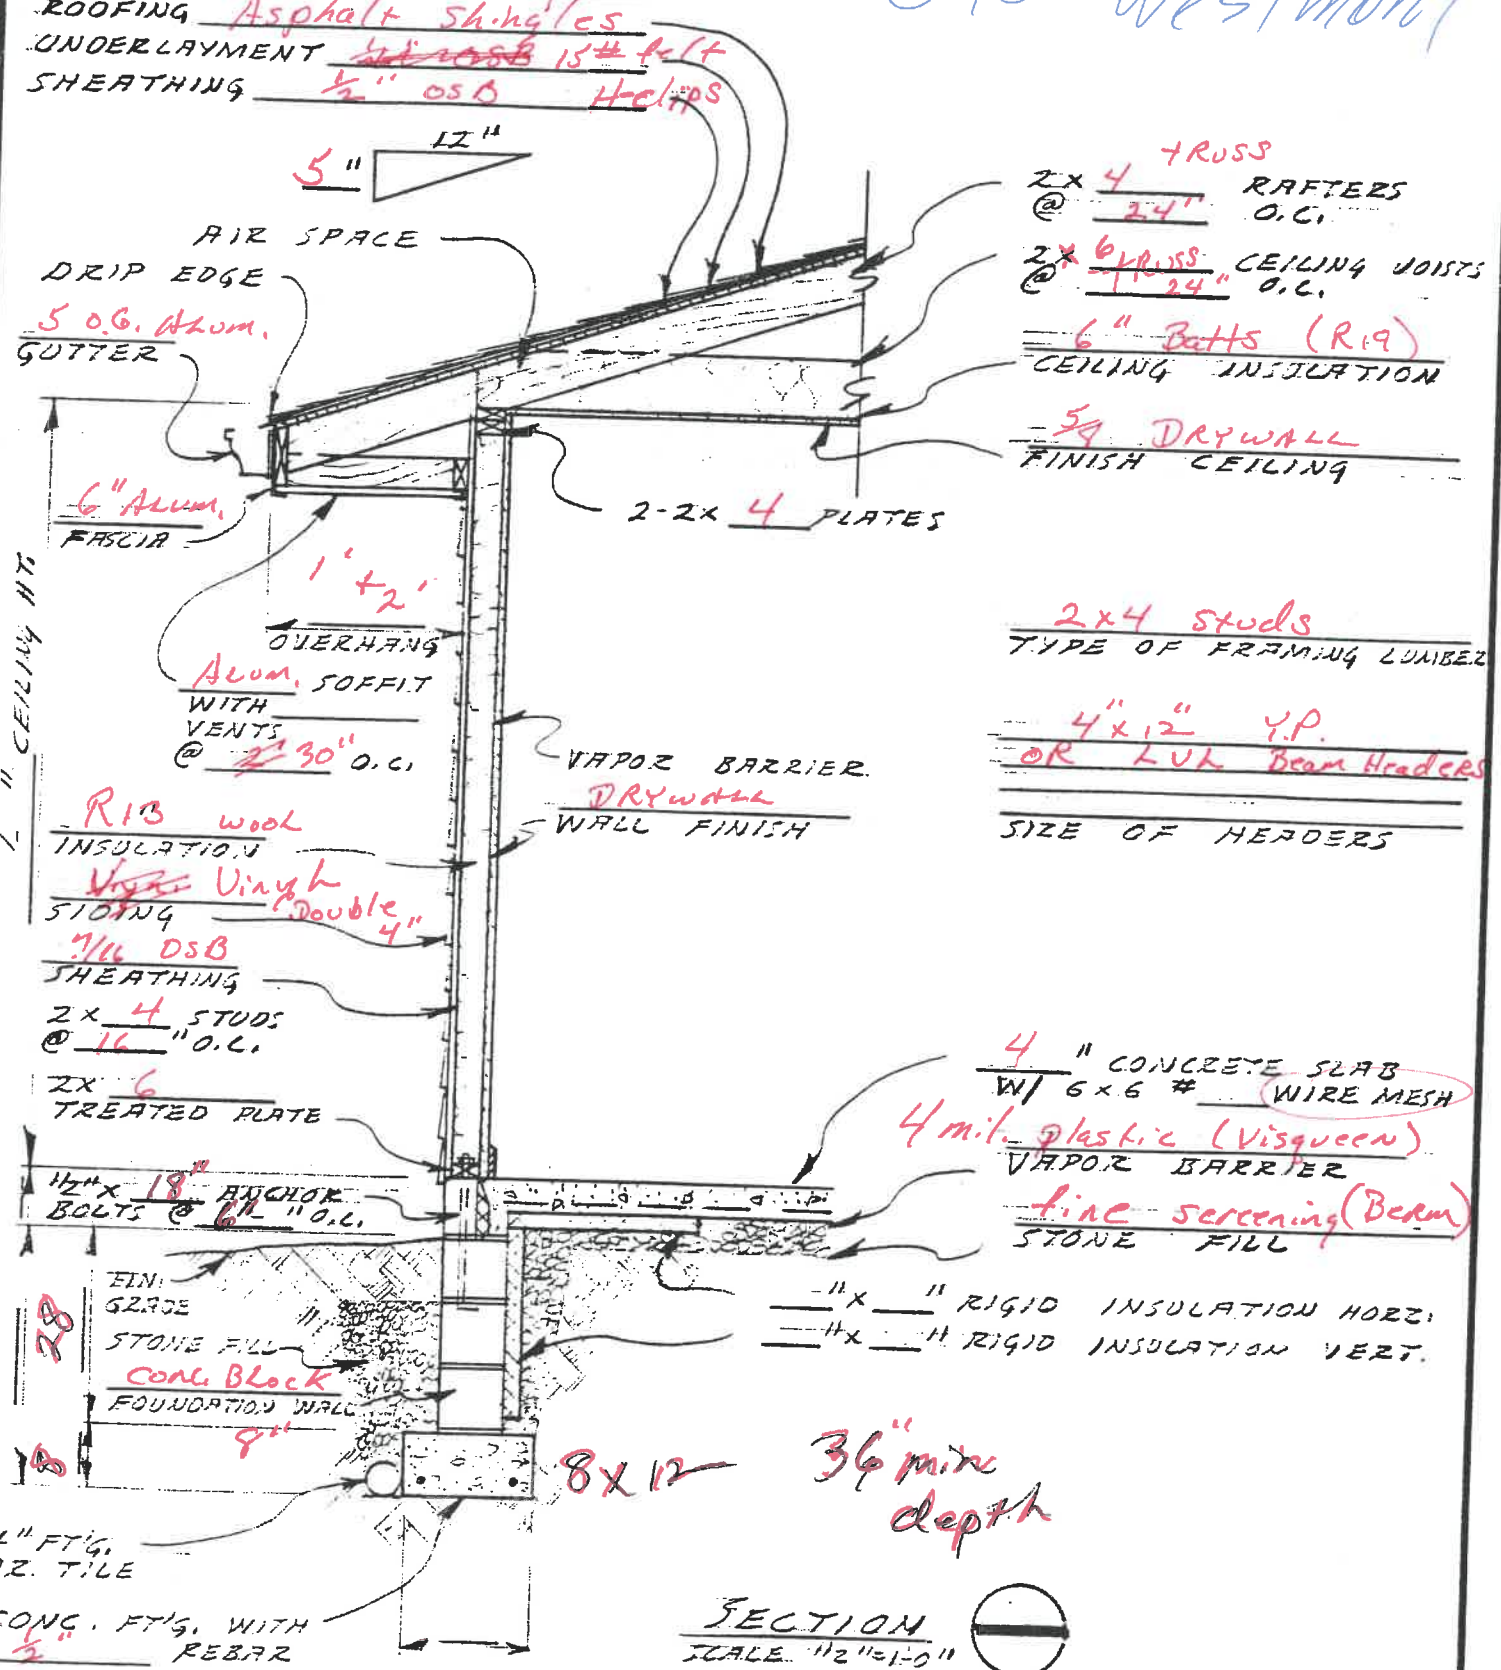 ROOFING Asphalt Shingles
UNDERLAYMENT 15# felt
SHEATHING 1/2" OSB H-clips
Westmont
12"
5"
AIR SPACE
DRIP EDGE
5 O.G. Alum.
GUTTER
6" Alum.
FASCIA
CEILING HT.
1' + 2'
OVERHANG
Alum. SOFFIT
WITH
VENTS
@ 30" O.C.
R13 wool
INSULATION
Vinyl
SIDING Double 4"
7/16 OSB
SHEATHING
2 x 4 STUDS
@ 16 " O.C.
2x 6
TREATED PLATE
1/2" x 18" ANCHOR
BOLTS @ 6'- " O.C.
FIN.
GRADE
STONE FILL
28
Conc. Block
FOUNDATION WALL
8"
8
" FT'G.
TILE
CONC. FT'G. WITH
1/2" REBAR
2-2x 4 PLATES
VAPOR BARRIER
DRYWALL
WALL FINISH
tRUSS
2x 4 RAFTERS
@ 24" O.C.
2x 6 tRUSS CEILING JOISTS
@ 24" O.C.
6" Batts (R19)
CEILING INSULATION
5/8 DRYWALL
FINISH CEILING
2x4 studs
TYPE OF FRAMING LUMBER
4" x 12" Y.P.
OR LVL Beam Headers
SIZE OF HEADERS
4 " CONCRETE SLAB
W/ 6x6 # WIRE MESH
4 mil. plastic (Visqueen)
VAPOR BARRIER
fine screening (Berm)
STONE FILL
" x " RIGID INSULATION HORZ.
" x " RIGID INSULATION VERT.
8 x 12
36" min
depth
SECTION
SCALE 1/2"=1'-0"